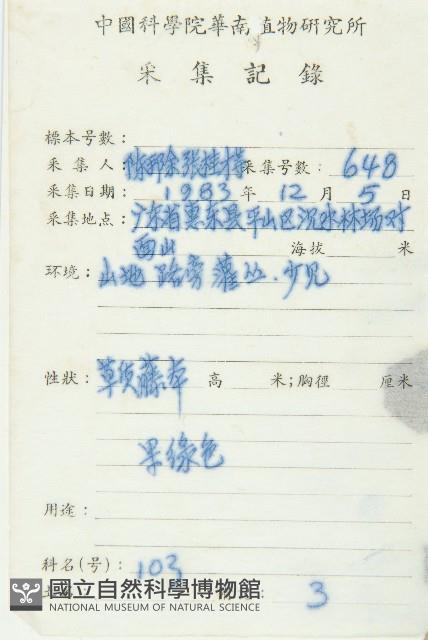 中國科學院華南植物研究所
采集記錄
標本号數：
采集人：陈邦余张桂才采集号數：648
采集日期：1983年12月5日
采集地点：广东省惠东县平山区沉水林场对
面山 海拔 米
环境：山地 路旁灌丛．少见
性狀：草质藤本 高 米；胸徑 厘米
果绿色
用途：
科名(号)：103
國立自然科學博物館
NATIONAL MUSEUM OF NATURAL SCIENCE
3